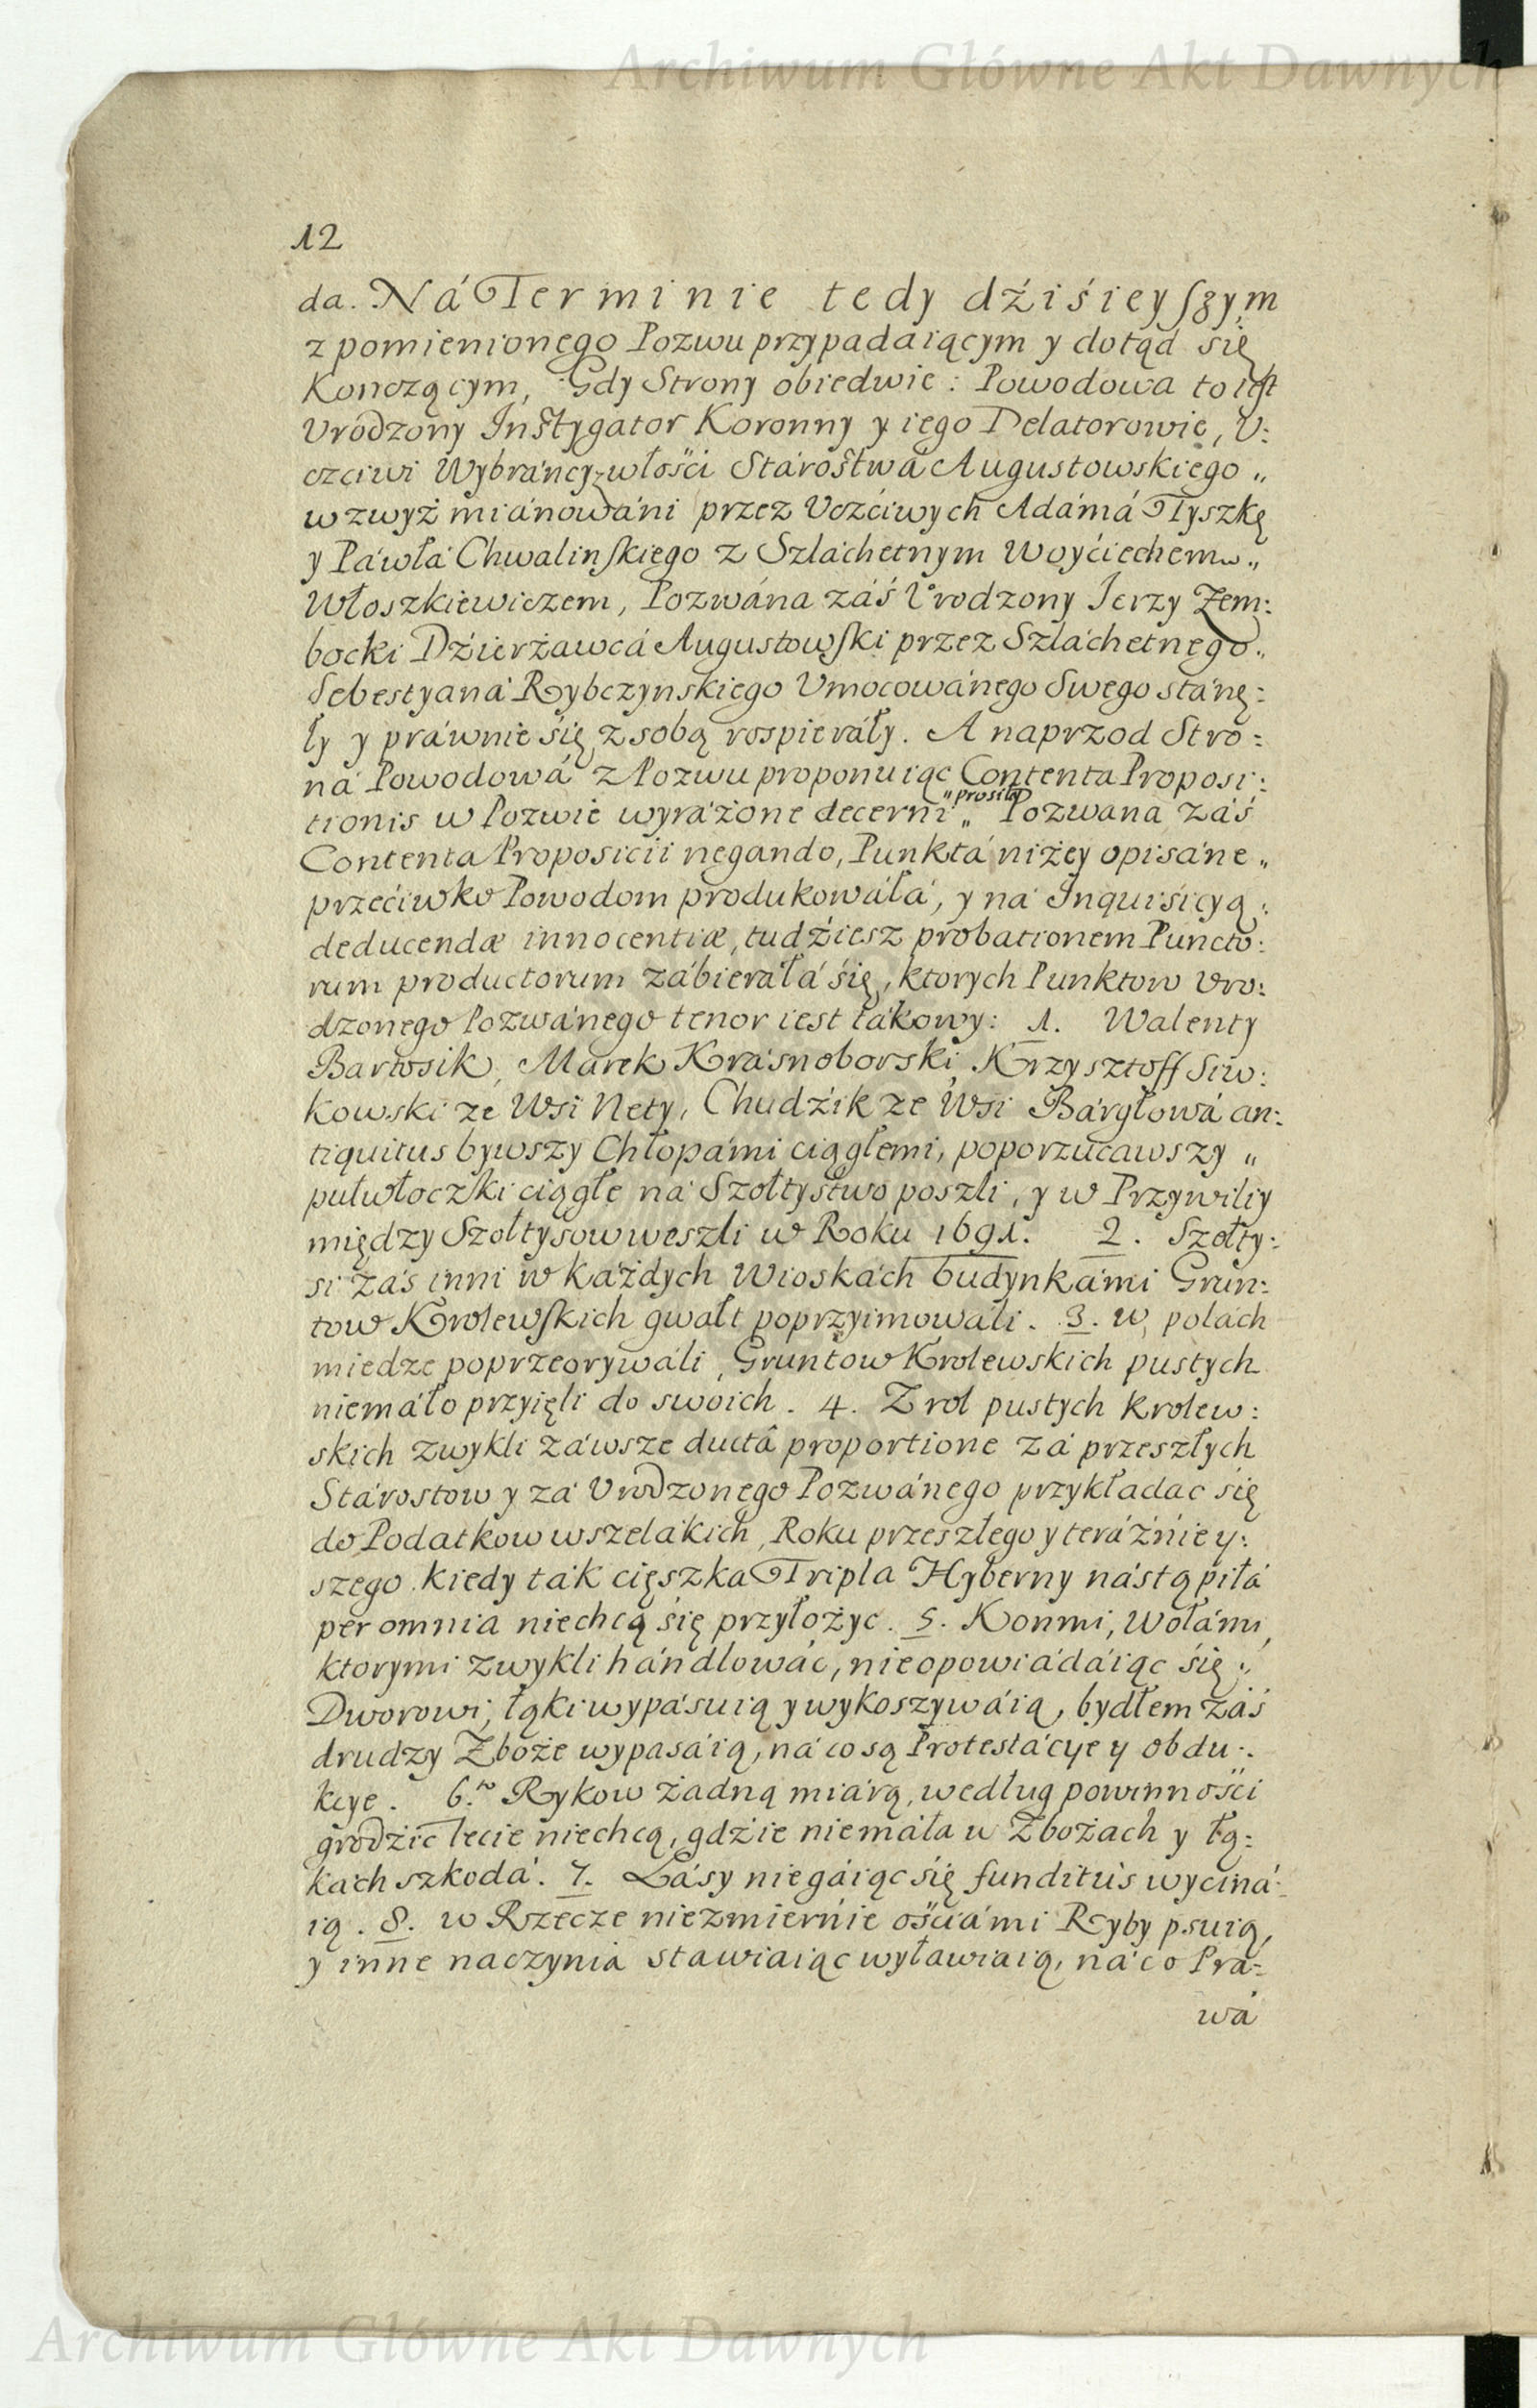 Archiwum Główne Akt Dawnych
12
da. Ná Terminie tedy dźiśieyszym
z pomienionego Pozwu przypadaiącym y dotąd się
Konczącym, Gdy Strony obiedwie: Powodowa to iest
Vrodzony Instygator Koronny y iego Delatorowie, V:
czciwi Wybráncy z włośći Stárostwá Augustowskiego „
wzwyż miánowáni przez Vczćiwych Adámá Tyszkę
y Páwłá Chwalinskiego z Szláchetnym Woyćiechem „
Włoszkiewiczem, Pozwána záś Vrodzony Jerzy Zem:
bocki Dźierżawcá Augustowski przez Szláchetnego „
Sebestyaná Rybczynskiego Vmocowánego Swego stánę:
ły y práwnie się z sobą rospieráły. A naprzod Stro:
ná Powodowá z Pozwu proponuiąc Contenta Proposi:
tionis w Pozwie wyráżone decerni „prosiłá„ Pozwana záś
Contenta Proposicii negando, Punktá niżey opisáne „
przećiwko Powodom produkowáłá, y ná Inquisicyą :
deducendæ innocentiæ, tudźiesz probationem Puncto:
rum productorum zábieráłá się, ktorych Punktow Vro:
dzonego Pozwánego tenor iest tákowy: 1. Walenty
Bartosik, Marek Krásnoborski, Krzysztoff Siw:
kowski ze Wsi Nety, Chudźik ze Wsi Bárgłowá an:
tiquitus bywszy Chłopámi ciągłemi, poporzucawszy „
pułwłoczki ciągłe ná Szołtystwo poszli, y w Przywiliy
między Szołtysow weszli w Roku 1691. 2. Szołty:
si záś inni w káżdych Wioskách budynkámi Grun:
tow Krolewskich gwałt poprzyimowáli. 3. w polách
miedze poprzeorywáli, Gruntow Krolewskich pustych
niemáło przyięli do swoich. 4. Z rol pustych krolew:
skich zwykli záwsze ductâ proportione zá przeszłych
Stárostow y zá Vrodzonego Pozwánego przykładac się
do Podatkow wszelákich, Roku przeszłego y teráźniey:
szego kiedy ták cięszka Tripla Hyberny nástąpiłá
per omnia niechcą się przyłożyc. 5. Konmi, Wołámi,
ktorymi zwykli hándlowáć, nieopowiádáiąc się :,
Dworowi, łąki wypásuią y wykoszywáią, bydłem záś
drudzy Zboże wypasáią, ná co są Protestácye y obdu:
kcye. 6.to Rykow żadną miárą, według powinnośći
grodźić lecie niechcą, gdźie niemáła w Zbożách y łą:
kách szkodá. 7. Lásy niegáiąc się funditùs wyciná:
ią. 8. w Rzecze niezmiernie ośćiámi Ryby psuią,
y inne naczynia stawiaiąc wyławiaią, ná co Prá=
wá
Archiwum Główne Akt Dawnych